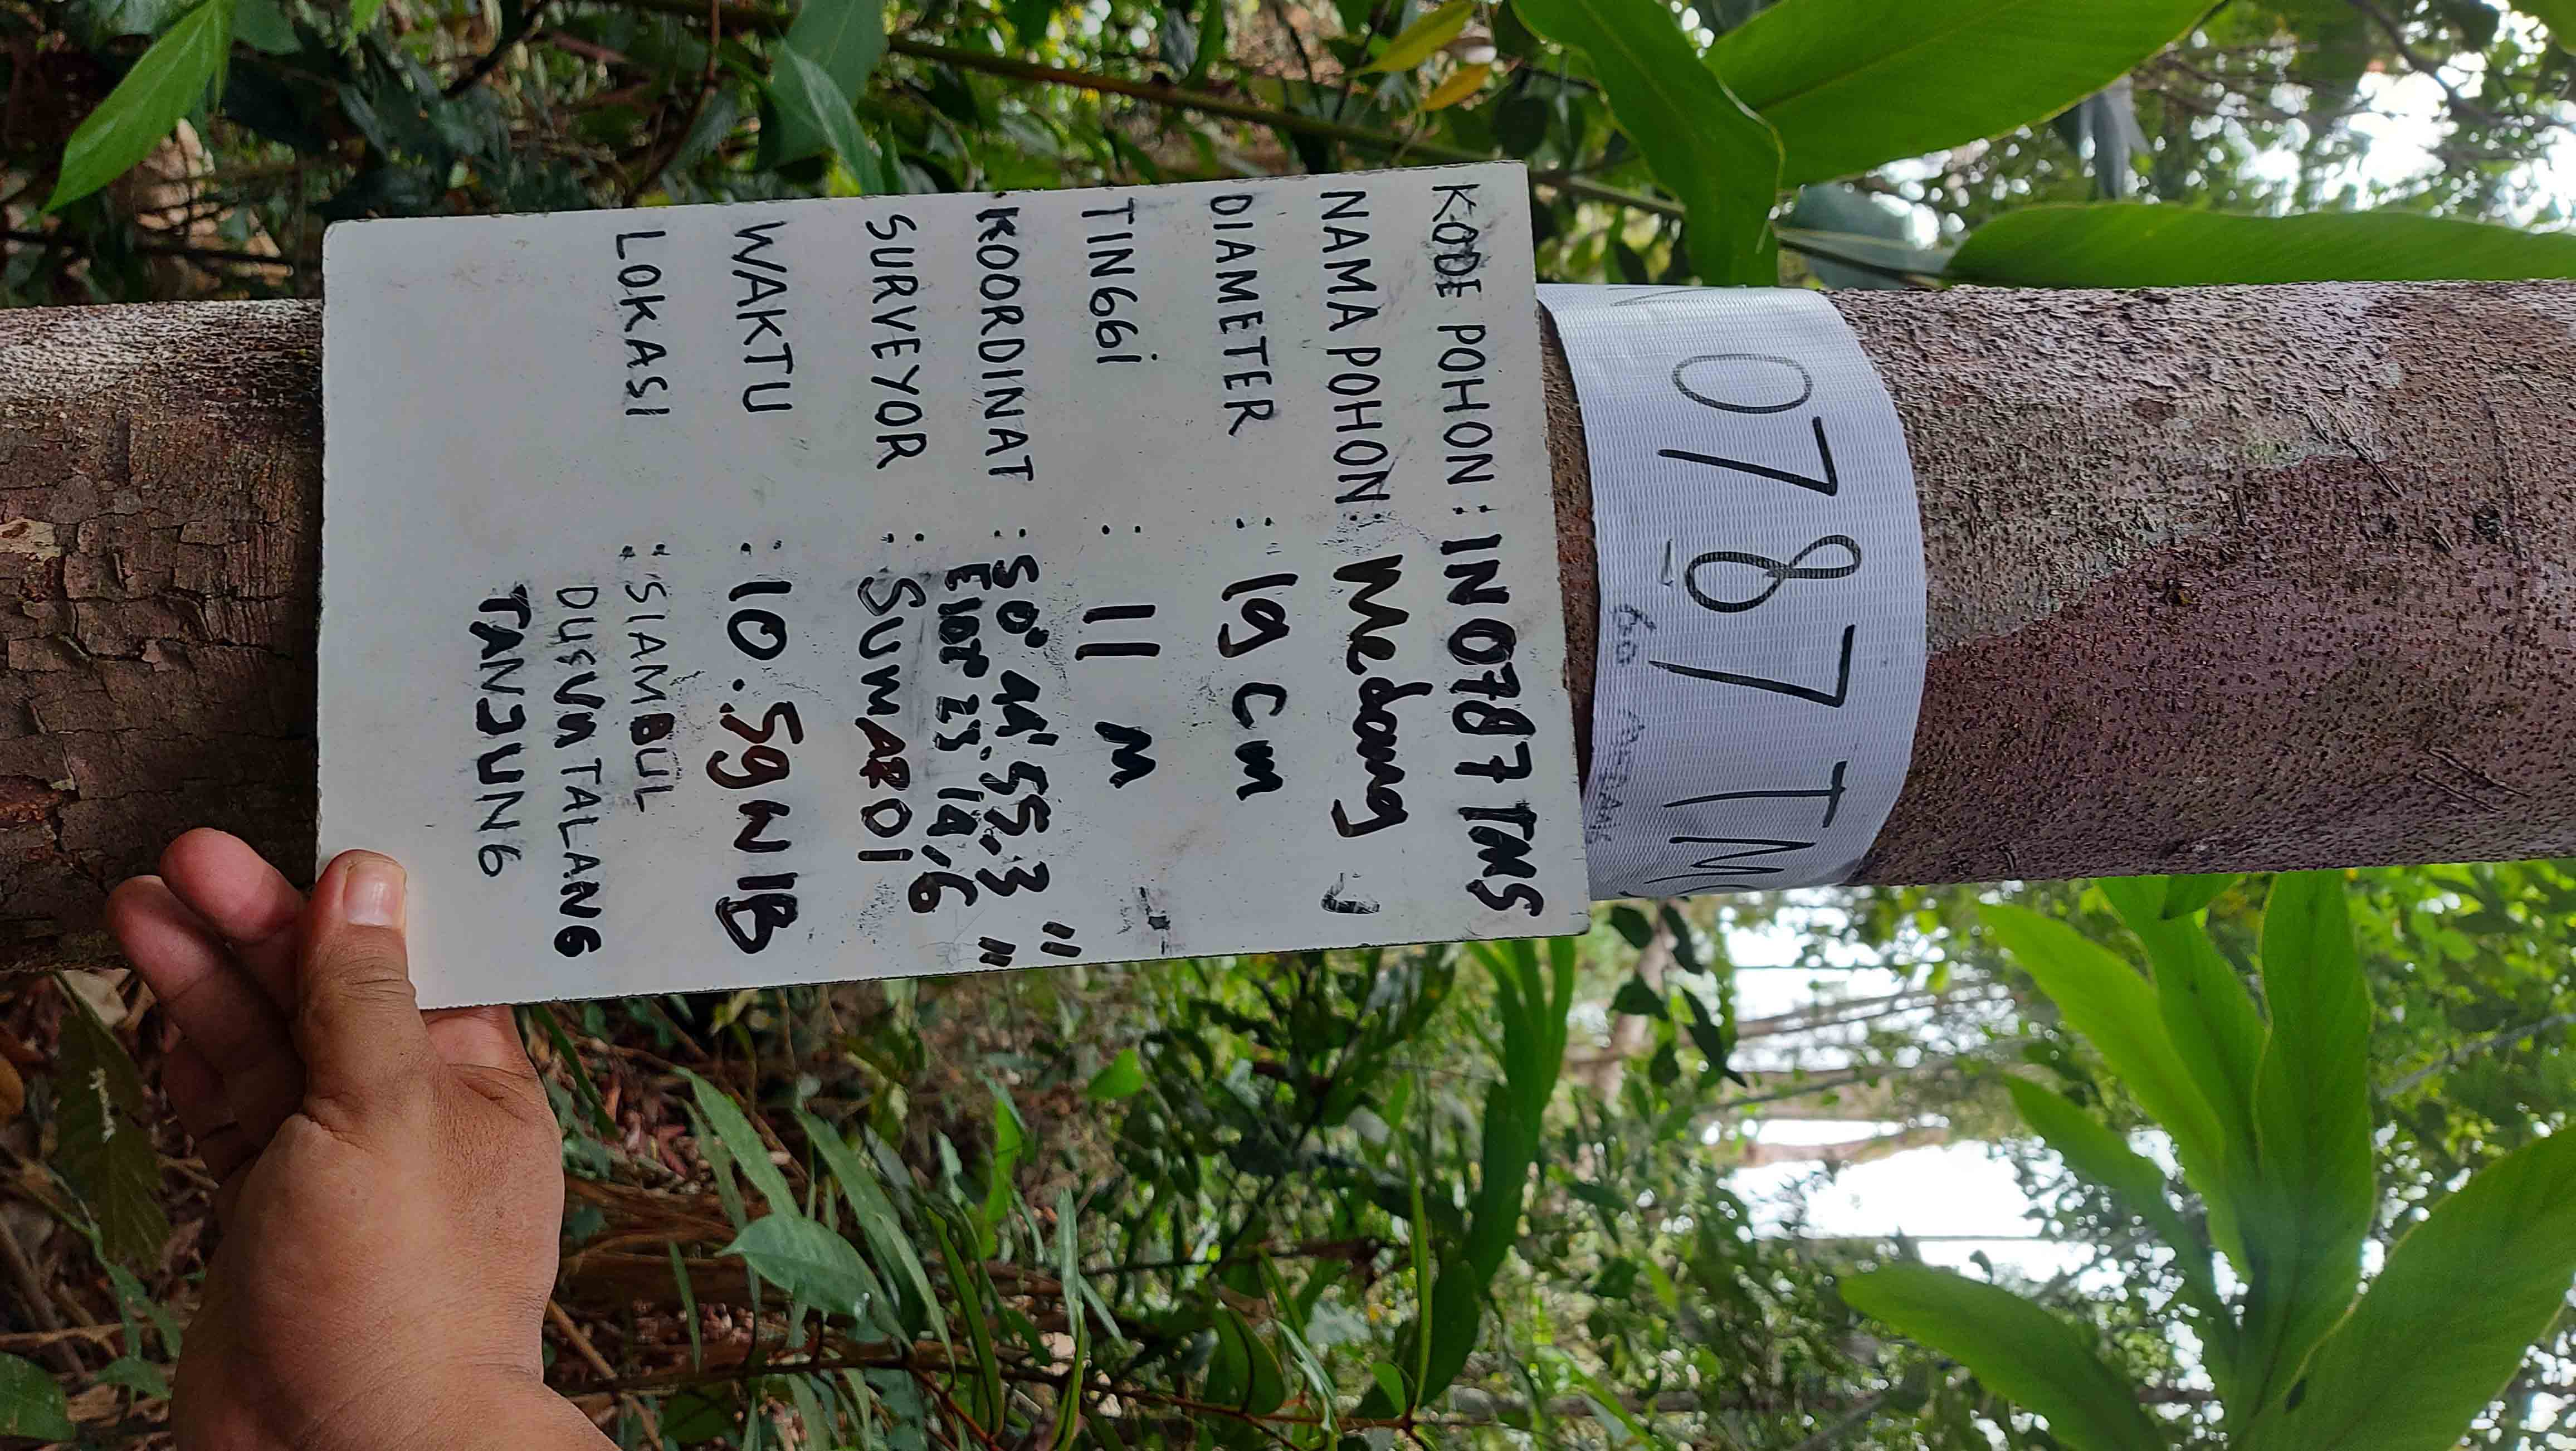 0787 TM
KODE POHON : IN 0787 TMS
NAMA POHON : Medang
DIAMETER : 19 cm
TINGGI : 11 m
KOORDINAT : S 0° 44' 55.3"
E 102° 23. 14,6"
SURVEYOR : SUWARDI
WAKTU : 10.59 WIB
LOKASI : SIAMBUL
DUSUN TALANG
TANJUNG